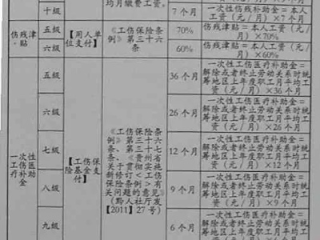 十级
均月缴费工资。
7个月
一次性伤残补助金＝本人工资（元/月）×7个月
伤残津贴
【用人单位支付】
五级
《工伤保险条例》第三十六条
70%
伤残津贴＝本人工资（元/月）×70%
六级
60%
伤残津贴＝本人工资（元/月）×60%
一次性工伤医疗补助金
【工伤保险基金支付】
五级
《工伤保险条例》第三十六条、第三十七条、《贵州省关于贯彻实施新修订<工伤保险条例>有关问题的意见》（黔人社厅发【2011】27号）
36个月
一次性工伤医疗补助金＝解除或者终止劳动关系时统筹地区上年度职工月平均工资（元/月）×36个月
六级
26个月
一次性工伤医疗补助金＝解除或者终止劳动关系时统筹地区上年度职工月平均工资（元/月）×26个月
七级
12个月
一次性工伤医疗补助金＝解除或者终止劳动关系时统筹地区上年度职工月平均工资（元/月）×12个月
八级
9个月
一次性工伤医疗补助金＝解除或者终止劳动关系时统筹地区上年度职工月平均工资（元/月）×9个月
九级
6个月
一次性工伤医疗补助金＝解除或者终止劳动关系时统筹地区上年度职工月平均工资（元/月）×6个月